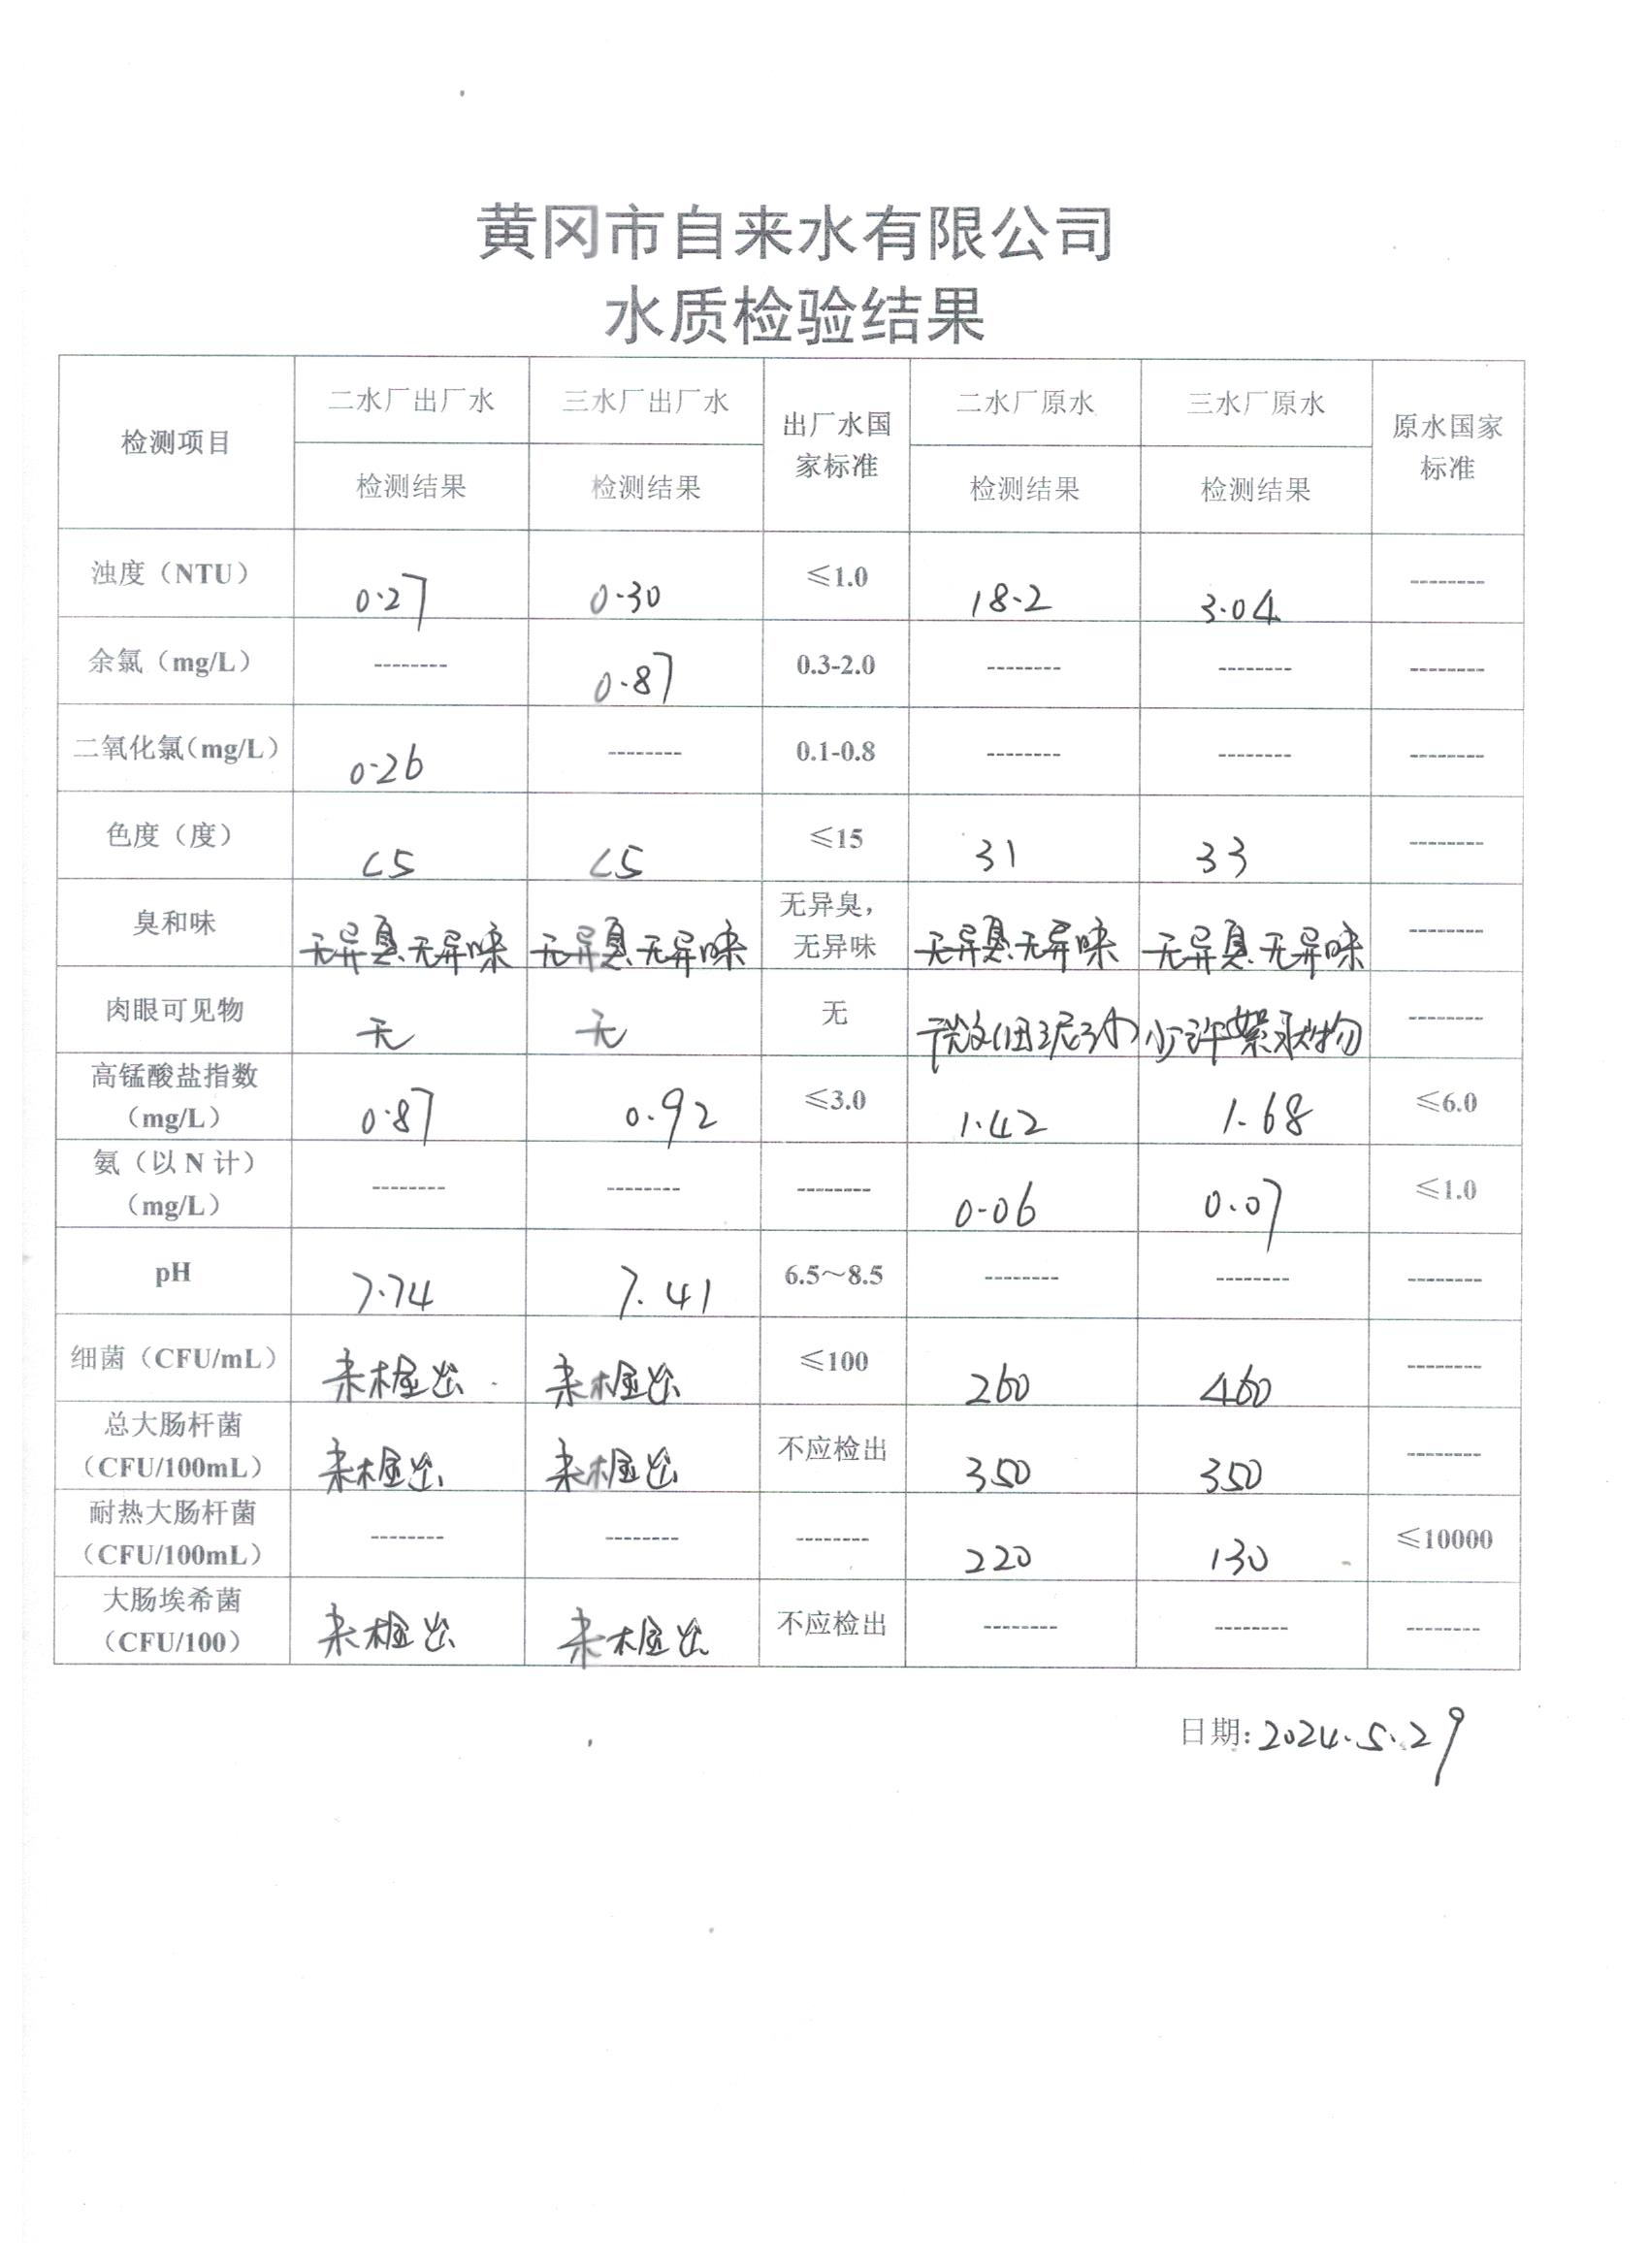 黄冈市自来水有限公司
水质检验结果
检测项目 二水厂出厂水 三水厂出厂水 出厂水国家标准 二水厂原水 三水厂原水 原水国家标准
检测结果 检测结果 检测结果 检测结果
浊度（NTU） 0.27 0.30 ≤1.0 18.2 3.04 --------
余氯（mg/L） -------- 0.87 0.3-2.0 -------- -------- --------
二氧化氯（mg/L） 0.26 -------- 0.1-0.8 -------- -------- --------
色度（度） <5 <5 ≤15 31 33 --------
臭和味 无异臭、无异味 无异臭、无异味 无异臭，无异味 无异臭、无异味 无异臭、无异味 --------
肉眼可见物 无 无 无 微细泥沙 少许絮状物 --------
高锰酸盐指数（mg/L） 0.87 0.92 ≤3.0 1.42 1.68 ≤6.0
氨（以N计）（mg/L） -------- -------- -------- 0.06 0.07 ≤1.0
pH 7.74 7.41 6.5～8.5 -------- -------- --------
细菌（CFU/mL） 未检出 未检出 ≤100 260 460 --------
总大肠杆菌（CFU/100mL） 未检出 未检出 不应检出 350 350 --------
耐热大肠杆菌（CFU/100mL） -------- -------- -------- 220 130 ≤10000
大肠埃希菌（CFU/100） 未检出 未检出 不应检出 -------- -------- --------
日期: 2024.5.29